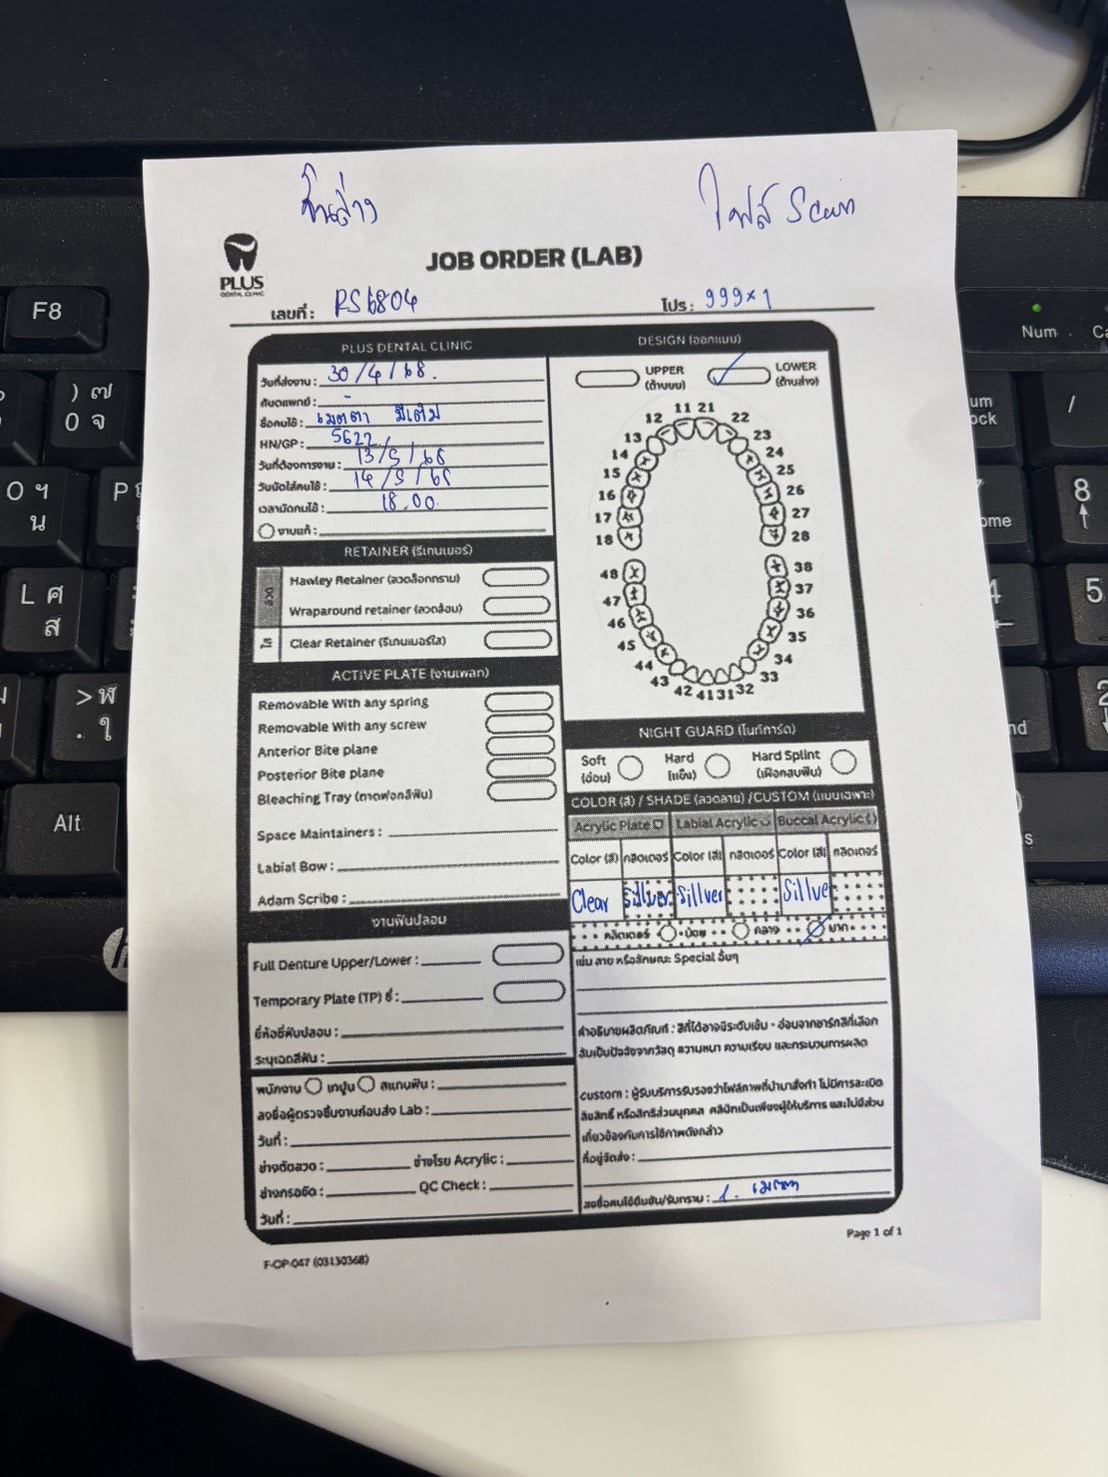 ชิ้นล่าง
ไฟล์ Scan
PLUS
DENTAL CLINIC
JOB ORDER (LAB)
เลขที่ : RS6804
โปร : 999×1
PLUS DENTAL CLINIC
วันที่ส่งงาน : 30/4/68.
ทันตแพทย์ : -
ชื่อคนไข้ : เมตตา มีเติม
HN/GP : 5622
วันที่ต้องการงาน : 13/5/68
วันนัดใส่คนไข้ : 14/5/68
เวลานัดคนไข้ : 18.00
งานแก้ :
RETAINER (รีเทนเนอร์)
ลวด
Hawley Retainer (ลวดล็อกกราม)
Wraparound retainer (ลวดล้อม)
ใส
Clear Retainer (รีเทนเนอร์ใส)
ACTIVE PLATE (งานเพลท)
Removable With any spring
Removable With any screw
Anterior Bite plane
Posterior Bite plane
Bleaching Tray (ถาดฟอกสีฟัน)
Space Maintainers :
Labial Bow :
Adam Scribe :
งานฟันปลอม
Full Denture Upper/Lower :
Temporary Plate (TP) ซี่ :
ยี่ห้อซี่ฟันปลอม :
ระบุเฉดสีฟัน :
พนักงาน เทปูน สแกนฟัน :
ลงชื่อผู้ตรวจชิ้นงานก่อนส่ง Lab :
วันที่ :
ช่างดัดลวด : ช่างโรย Acrylic :
ช่างกรอขัด : QC Check :
วันที่ :
DESIGN (ออกแบบ)
UPPER (ด้านบน)
LOWER (ด้านล่าง)
11 21
12 22
13 23
14 24
15 25
16 26
17 27
18 28
48 38
47 37
46 36
45 35
44 34
43 33
42 41 31 32
NIGHT GUARD (ไนท์การ์ด)
Soft (อ่อน)
Hard (แข็ง)
Hard Splint (เฝือกสบฟัน)
COLOR (สี) / SHADE (ลวดลาย) /CUSTOM (แบบเฉพาะ)
Acrylic Plate Labial Acrylic Buccal Acrylic
Color (สี) กลิตเตอร์ Color (สี) กลิตเตอร์ Color (สี) กลิตเตอร์
Clear Sillver Sillver Sillve
กลิตเตอร์ น้อย กลาง มาก
เช่น ลาย หรือลักษณะ Special อื่นๆ
คำอธิบายผลิตภัณฑ์ : สีที่ได้อาจมีระดับเข้ม - อ่อนจากชาร์ทสีที่เลือก
อันเป็นปัจจัยจากวัสดุ ความหนา ความเรียบ และกระบวนการผลิต
Custom : ผู้รับบริการรับรองว่าไฟล์ภาพที่นำมาสั่งทำ ไม่มีการละเมิด
ลิขสิทธิ์ หรือสิทธิส่วนบุคคล คลินิกเป็นเพียงผู้ให้บริการ และไม่มีส่วน
เกี่ยวข้องกับการใช้ภาพดังกล่าว
ที่อยู่จัดส่ง :
ลงชื่อคนไข้ยืนยัน/รับทราบ : 1. เมตตา
F-OP-047 (03130368)
Page 1 of 1
F8
Alt
Num